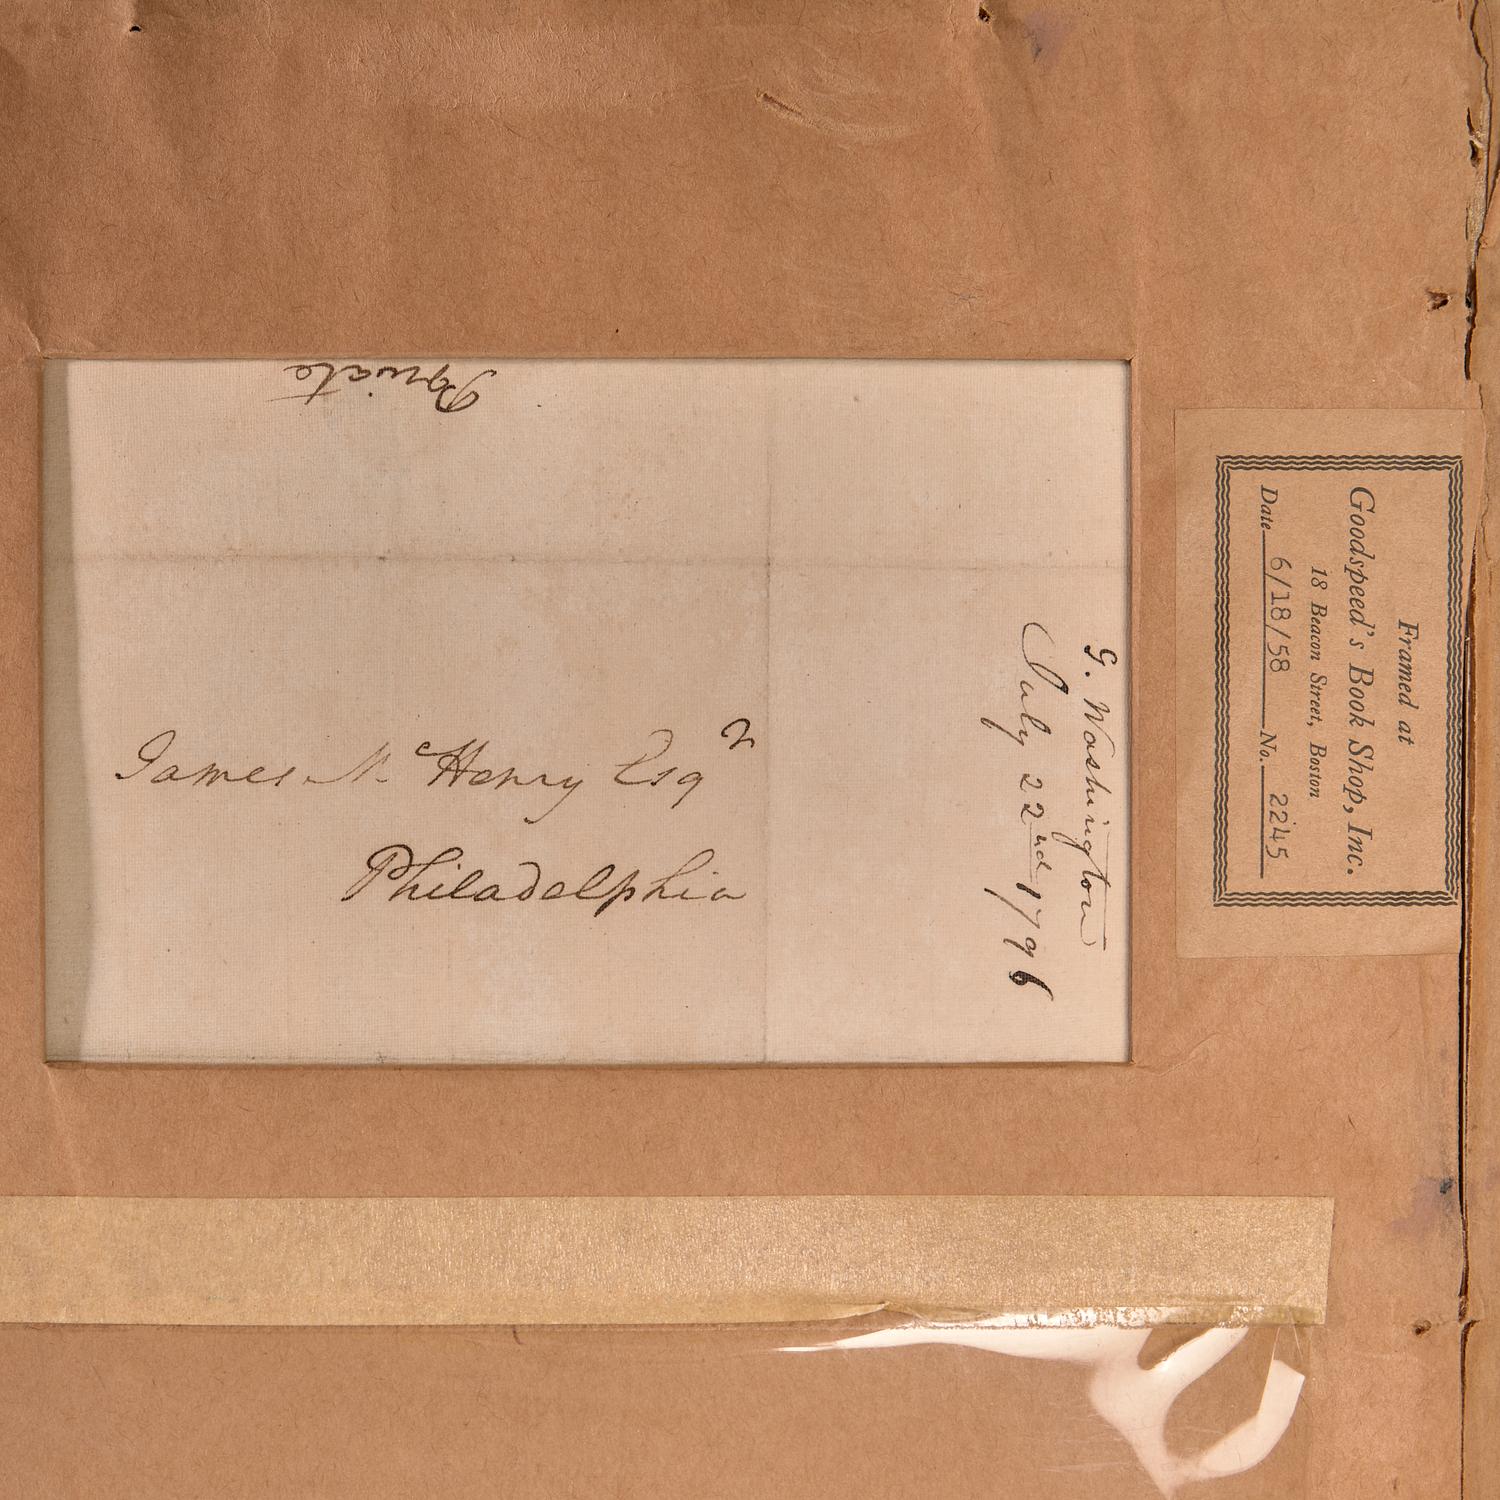 Private
James McHenry Esqr
Philadelphia
G. Washington
July 22nd 1796
Framed at
Goodspeed's Book Shop, Inc.
18 Beacon Street, Boston
Date 6/18/58 No. 2245